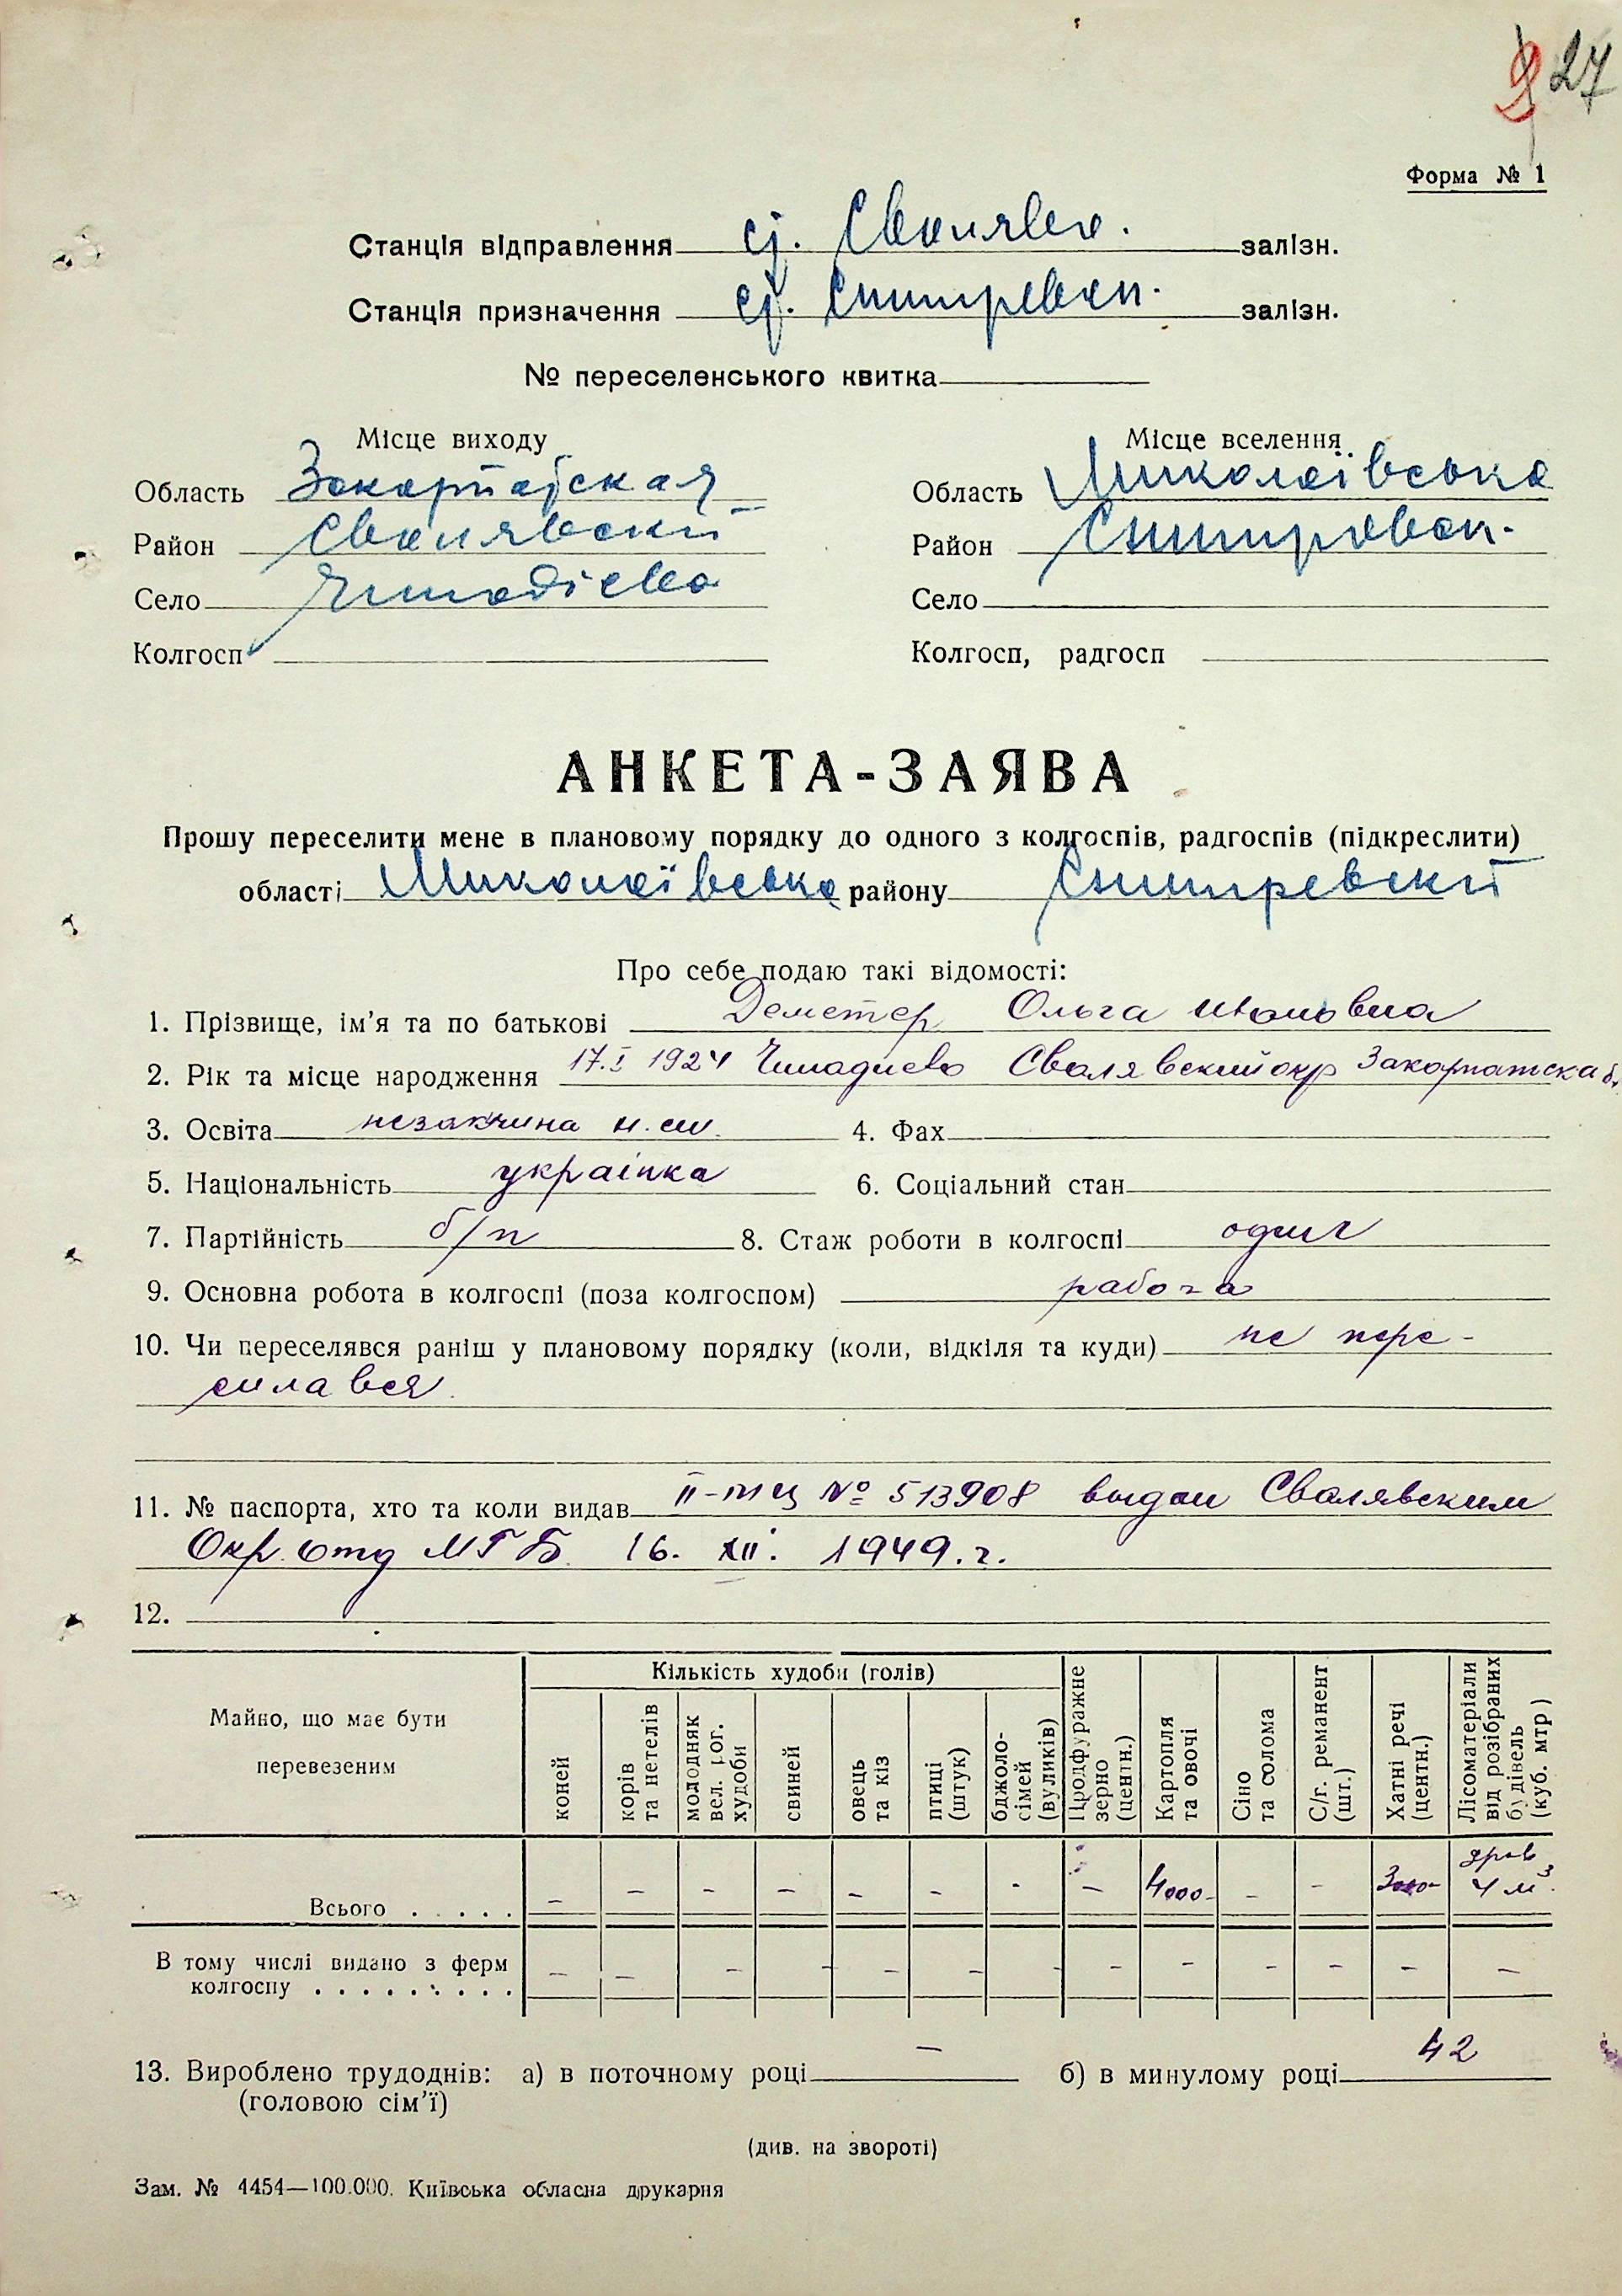 27
Форма № 1
Станція відправлення ст. Свалява. залізн.
Станція призначення ст. Снигиревск. залізн.
№ переселенського квитка
Місце виходу Місце вселення
Область Закарпатская Область Миколаївська
Район Свалявский Район Снигиревск.
Село Чинадієво Село
Колгосп Колгосп, радгосп
АНКЕТА-ЗАЯВА
Прошу переселити мене в плановому порядку до одного з колгоспів, радгоспів (підкреслити)
області Миколаївська району Снигиревский
Про себе подаю такі відомості:
1. Прізвище, ім’я та по батькові Деметер Ольга Ивановна
2. Рік та місце народження 17.I 1924 Чинадиево Свалявский окр Закарпатска
3. Освіта незакчина н.ш. 4. Фах
5. Національність українка 6. Соціальний стан
7. Партійність б/п 8. Стаж роботи в колгоспі один
9. Основна робота в колгоспі (поза колгоспом) работа
10. Чи переселявся раніш у плановому порядку (коли, відкіля та куди) не пере-
силався.
11. № паспорта, хто та коли видав II-ТЦ № 513908 выдан Свалявским
Окр. отд МГБ 16. XII. 1949. г.
12.
Майно, що має бути перевезеним
Кількість худоби (голів)
коней
корів та нетелів
молодняк вел. рог. худоби
свиней
овець та кіз
птиці (штук)
бджоло-сімей (вуликів)
Продфуражне зерно (центн.)
Картопля та овочі
Сіно та солома
С/г. реманент (шт.)
Хатні речі (центн.)
Лісоматеріали від розібраних будівель (куб. мтр)
Всього . . . . . – – – – – – - – 4000- – – 3000- дров 4 м³.
В тому числі видано з ферм
колгоспу . . . . . . . . . – – – – – – – – – – – – –
13. Вироблено трудоднів: а) в поточному році – б) в минулому році 42
(головою сім’ї)
(див. на звороті)
Зам. № 4454—100.000. Київська обласна друкарня